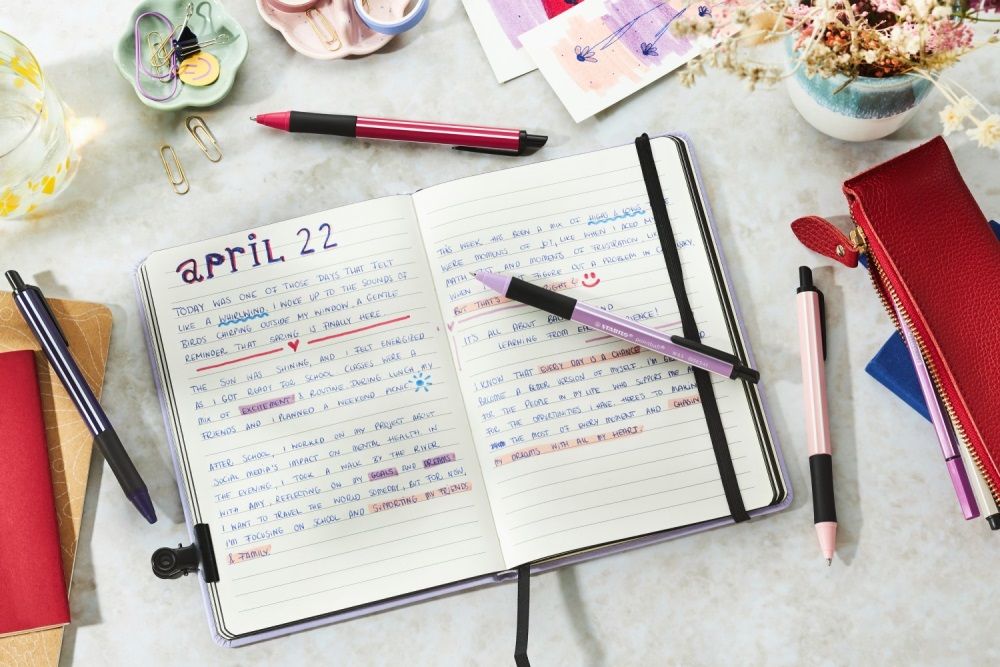 april 22
TODAY WAS ONE OF THOSE DAYS THAT FELT
LIKE A WHIRLWIND. I WOKE UP TO THE SOUNDS OF
BIRDS CHIRPING OUTSIDE MY WINDOW, A GENTLE
REMINDER THAT SPRING IS FINALLY HERE.
THE SUN WAS SHINING, AND I FELT ENERGIZED
AS I GOT READY FOR SCHOOL. CLASSES WERE A
MIX OF EXCITEMENT & ROUTINE. DURING LUNCH, MY
FRIENDS AND I PLANNED A WEEKEND PICNIC
AFTER SCHOOL, I WORKED ON MY PROJECT ABOUT
SOCIAL MEDIA'S IMPACT ON MENTAL HEALTH. IN
THE EVENING, I TOOK A WALK BY THE RIVER
WITH AMY, REFLECTING ON MY GOALS AND DREAMS.
I WANT TO TRAVEL THE WORLD SOMEDAY, BUT FOR NOW,
I'M FOCUSING ON SCHOOL AND SUPPORTING MY FRIENDS
& FAMILY.
THIS WEEK HAS BEEN A MIX OF HIGHS & LOWS.
WERE MOMENTS OF JOY, LIKE WHEN I ACED MY
MATH AND MOMENTS OF FRUSTRATION, LIKE
WHEN FIGURE OUT A PROBLEM IN
BUT THAT'S RIGHT?
IT'S ALL ABOUT
LEARNING FROM
I KNOW THAT EVERY DAY IS A CHANCE
BECOME A BETTER VERSION OF MYSELF. I'M
FOR THE PEOPLE IN MY LIFE WHO SUPPORT ME
FOR THE OPPORTUNITIES I HAVE. HERE'S TO MAKING
THE MOST OF EVERY MOMENT AND
MY DREAMS WITH ALL MY HEART.
STABILO pointball